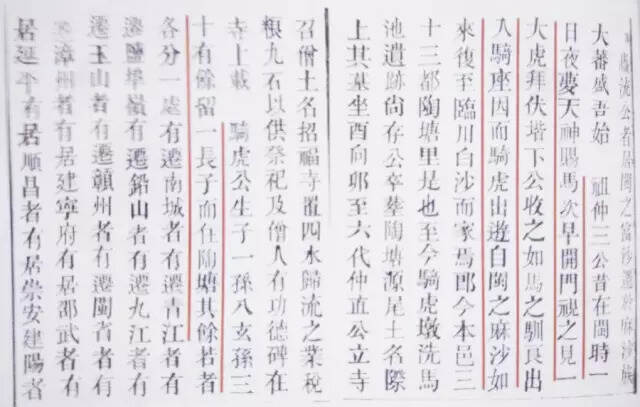 流公者居閩之富沙遷於麻沙族
大蕃盛吾始 祖仲三公昔在閩時一
日夜夢天神賜馬次早開門視之見一
大虎拜伏堦下公收之如馬之馴良出
入騎座因而騎虎出遊自閩之麻沙如
來復至臨川白沙而家焉即今本邑三
十三都陶塘里是也至今騎虎墩洗馬
池遺跡尚存公卒塟陶塘源尾土名際
上其墓坐酉向卯至六代仲直公立寺
召僧土名招福寺置四水歸流之業稅
粮九石以供祭祀及僧人有功德碑在
寺上載 騎虎公生子一孫八玄孫三
十有餘留一長子而住陶塘其餘若者
各分一處有遷南城者有遷青江者有
遷鹽埠嶺有遷鉛山者有遷九江者有
遷玉山者有遷贛州者有遷閩省者有
漳州者有居建寧府有居邵武者有
居延平有居順昌者有居崇安建陽者